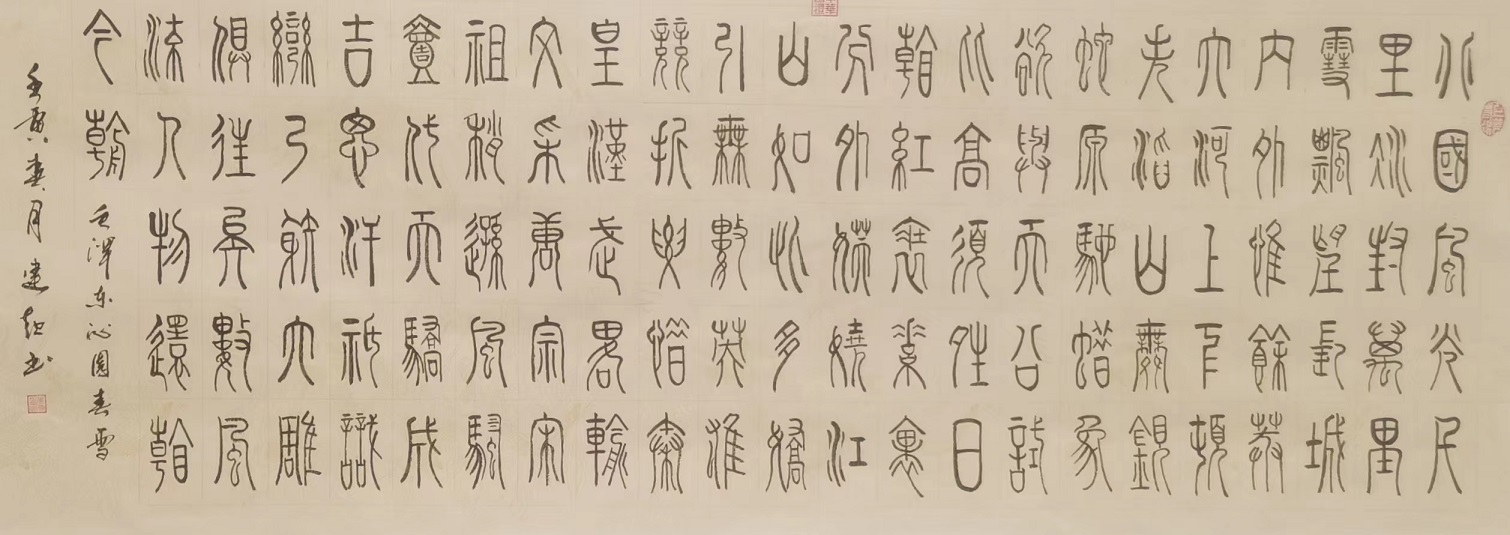 北國風光千
里冰封萬里
雪飄望長城
內外惟餘莽
大河上下頓
失滔山舞銀
蛇原馳蜡象
欲與天公試
比高須晴日
看紅裝素裹
分外妖嬈江
山如此多嬌
引無數英雄
競折腰惜秦
皇漢武略輸
文采唐宗宋
祖稍遜風騷
代天驕成
吉思汗祗識
彎弓射大雕
俱往矣數風
流人物還看
今朝 毛澤東沁園春雪
壬寅春月建書